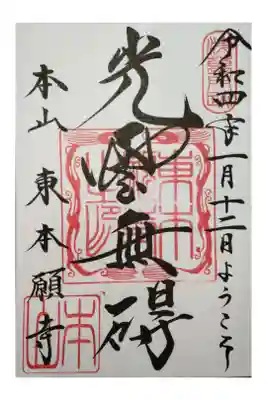 令和四年一月十二日ようこそ
光雲無碍
本山 東本願寺
本山